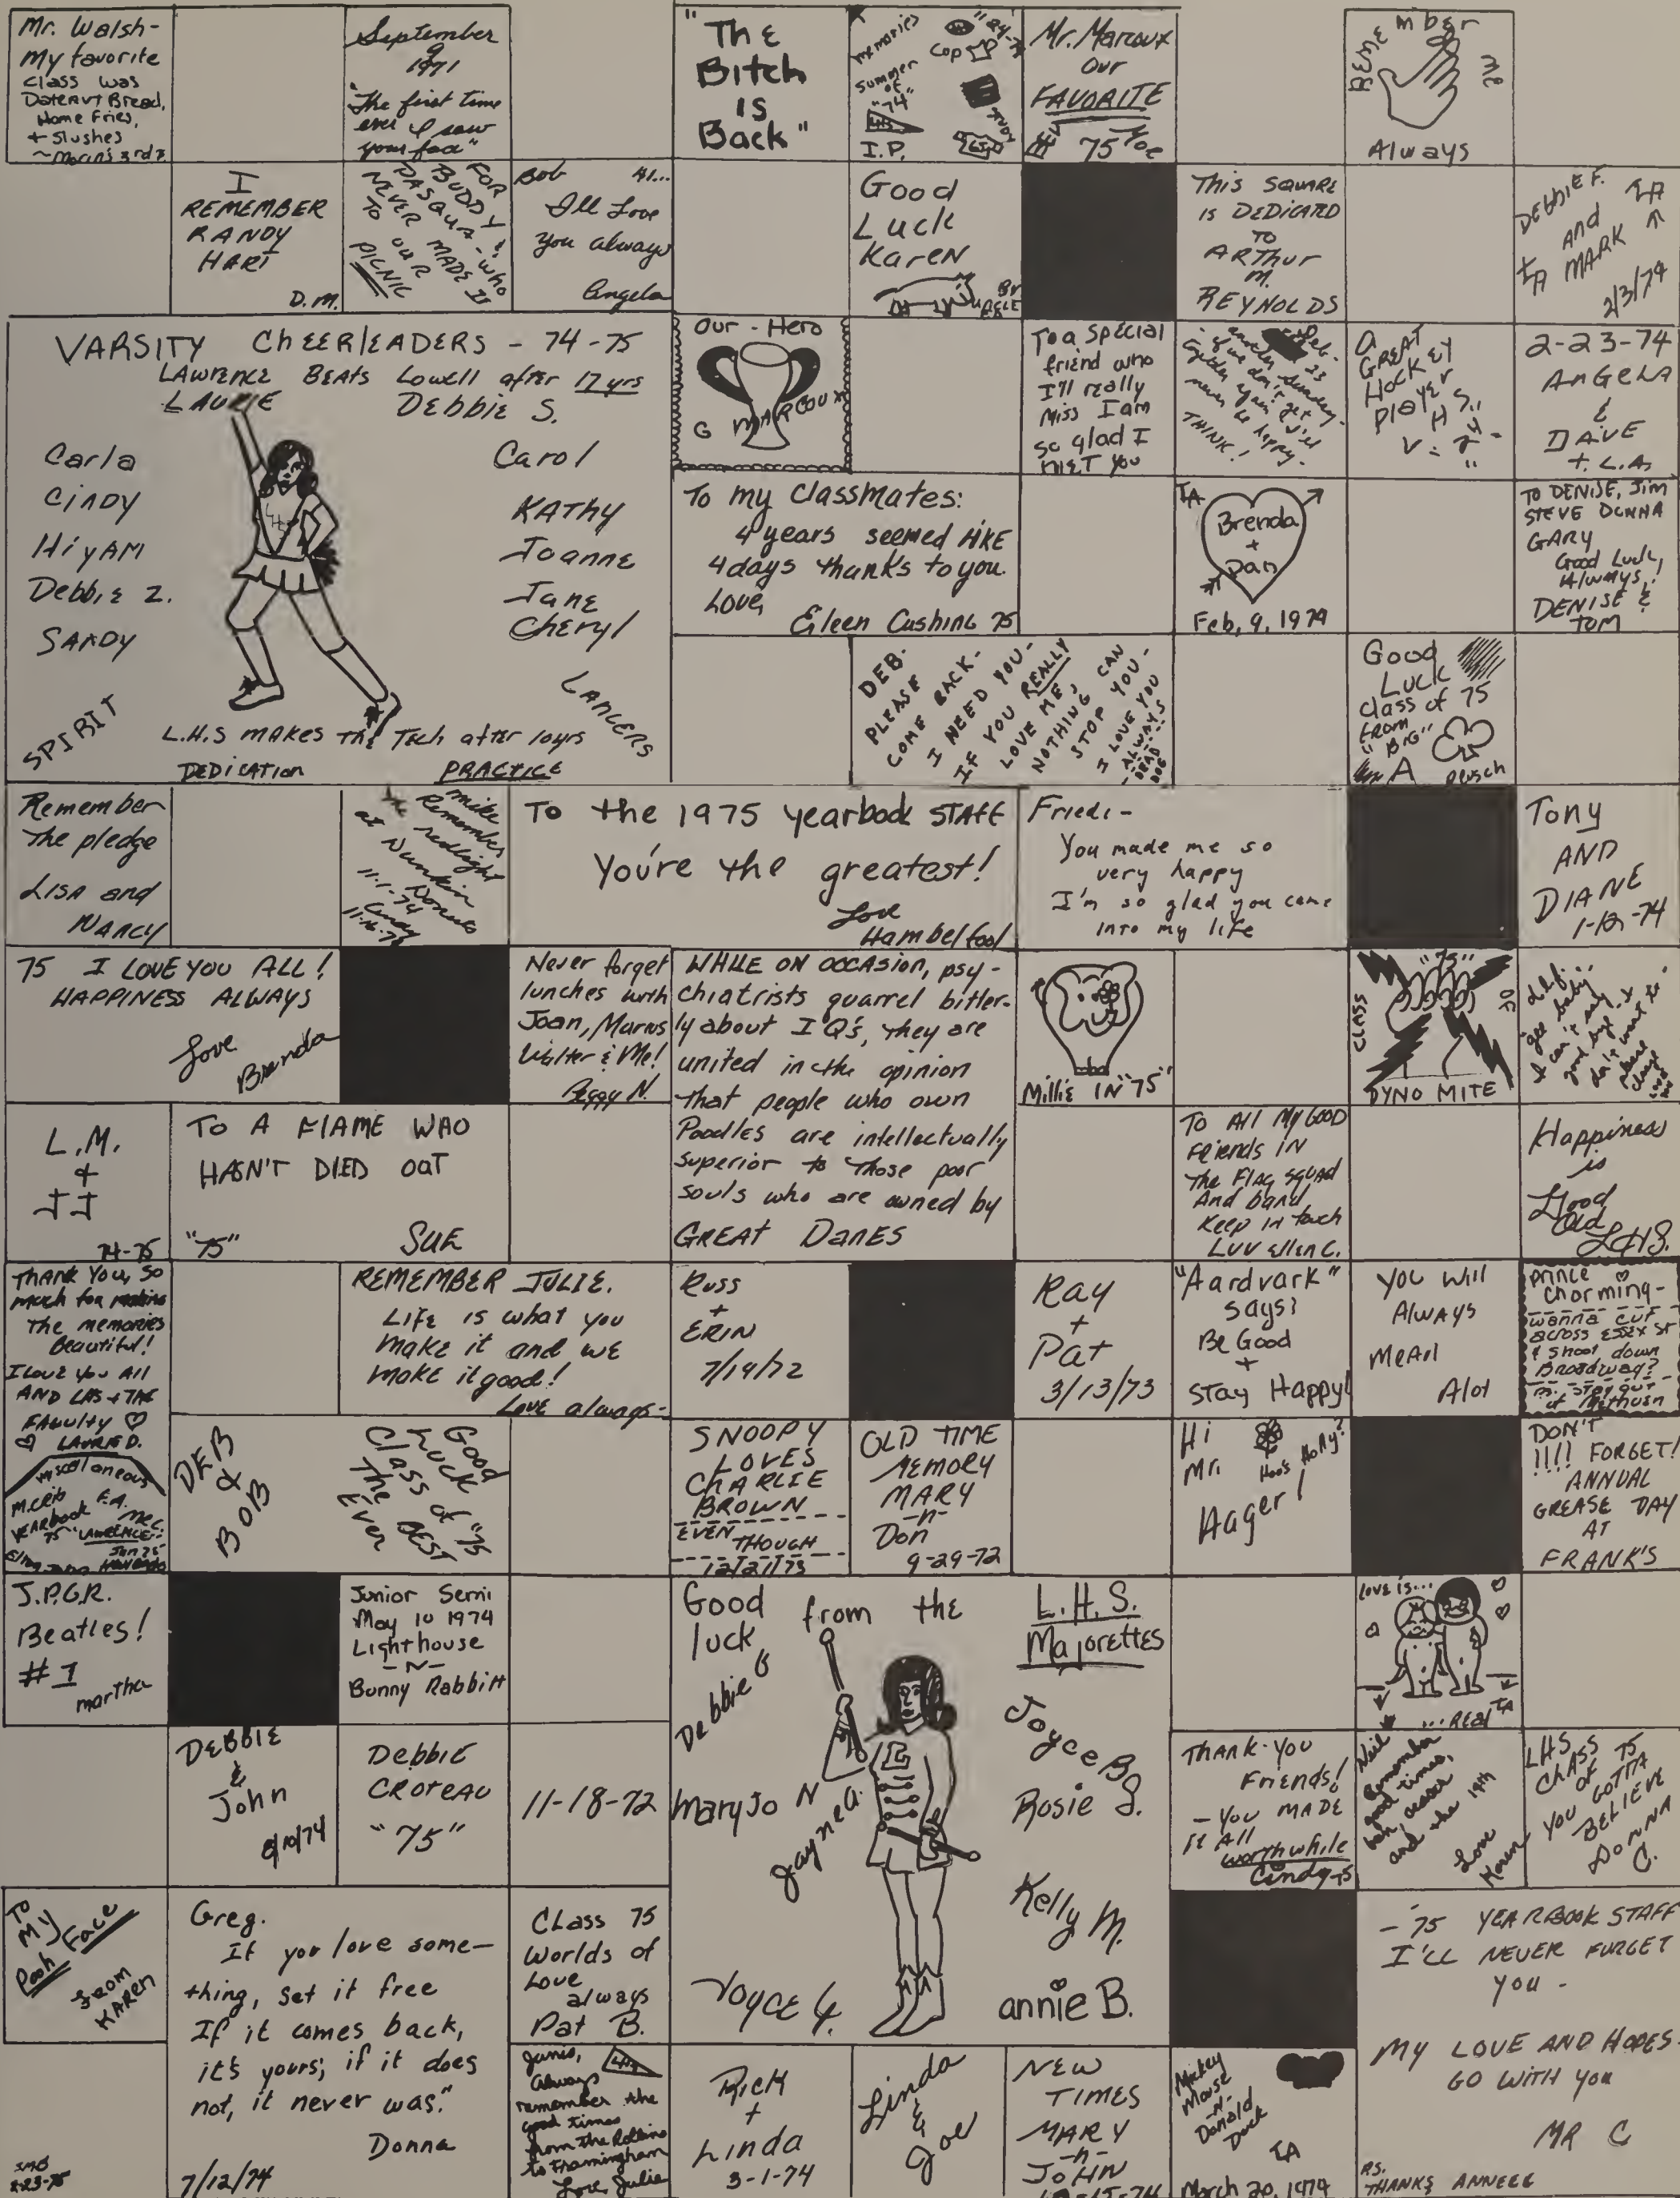 Mr. Walsh-
My favorite
Class was
Datenut Bread,
Home Fries,
+ Slushes
September
9
1971
"The first time
ever I saw
your face"
"The
Bitch
is
Back"
memories
summer
of
"74"
I.P.
Cop
Mr. Marcoux
our
FAVORITE
75
REMEMBER
ME
Always
I
REMEMBER
RANDY
HART
D.M.
FOR
BUDDY &
PASQUA - who
NEVER MADE IT
TO OUR
PICNIC
Bob
I'll Love
You always
Angela
Good
Luck
Karen
This SQUARE
is DEDICATED
TO
ARThur
M.
REYNOLDS
DEbbiE F.
and
MARK
2/3/74
VARSITY CheERlEADERS - 74-75
LAWRENCE BEATS Lowell after 17 yrs
LAURIE
DEbbie S.
Carla
Carol
Cindy
KATHy
HiyAM
Joanne
Debbie Z.
Jane
SANDY
Cheryl
SPIRIT
LANCERS
L.H.S makes The Tech after 10yrs
DEDICATION PRACTICE
Our - Hero
G MARCOUX
To a special
friend who
I'll really
Miss I am
so glad I
MET You
THINK!
A
GREAT
HOCKEY
PlAYER
2-23-74
AnGELA
&
DAVE
+ L.A.
To my Classmates:
4 years seemed liKE
4 days thanks to you.
Love,
Eileen Cushing 75
IA
Brenda
+
Dan
Feb, 9, 1974
TO DENISE, Jim
STEVE DONNA
GARY
Good Luck,
Always,
DENISE &
TOM
DEB-
PLEASE
COME BACK-
I NEED YOU-
IF YOU REALLY
LOVE ME,
NOTHING CAN
STOP YOU-
I LOVE YOU
ALWAYS
Good
Luck
class of 75
from
"BIG"
A
Remember
The pledge
LISA and
NANCY
mike
Remember
redlight
at Dunkin
Donuts
11-1-74
To the 1975 yearbook STAff
You're the greatest!
Love
Friedi-
You made me so
very happy
I'm so glad you came
into my life
Tony
AND
DIANE
1-12-74
75 I LOVE YOU ALL!
HAPPINESS ALWAYS
Love
Brenda
Never forget
lunches with
Joan,
Walter & Me!
Peggy N.
WHILE ON OCCASion, psy-
chiatrists quarrel bitter-
ly about I Q's, they are
united in the opinion
that people who own
Poodles are intellectually
superior to those poor
souls who are owned by
GREAT DanES
Millie IN "75"
CLASS OF
"75"
DYNO MITE
L.M.
+
JJ
74-75
TO A FlAME WHO
HASN'T DIED OUT
"75" SUE
To All My GOOD
Friends IN
the Flag squad
And band
Keep in touch
Luv Ellen C.
Happiness
is
Good
Old
LHS.
THANK You, so
much for making
The memories
Beautiful!
I love you All
AND LHS + THE
FAculty
LAURIE D.
REMEMBER JULIE.
Life is what you
Make it and WE
Make it good!
Love always-
Russ
+
ERIN
7/14/72
Ray
+
Pat
3/13/73
"Aardvark"
says:
Be Good
+
Stay Happy!
You will
Always
Mean
Alot
Prince
Charming-
wanna cut
across ESSEX ST
& shoot down
Broadway?
miscellaneous
YEARbook
DEB
&
BOB
Good
Luck
Class of "75
The BEST
Ever
SNOOPY
LOVES
CHARLIE
BROWN
EVEN
THOUGH
12/21/73
OLD TIME
MEMORY
MARY
-n-
Don
9-29-72
Hi
Mr.
Hager!
DON'T
!!!! FORGET!
ANNUAL
GREASE DAY
AT
FRANK'S
J.P.G.R.
Beatles!
#1
martha
Junior Semi
May 10 1974
Lighthouse
-N-
Bunny Rabbitt
Good
luck
from the
L.H.S.
Majorettes
Debbie G
Joyce B.
Mary Jo N
Rosie S.
Jayne A.
Kelly M.
Joyce G.
annie B.
LOVE is...
...REAL
DEBBIE
&
John
8/10/74
Debbie
CROTEAU
"75"
11-18-72
THANK-YOU
Friends!
-You MADE
it All
worthwhile
Cindy 75
Neil
Remember
good times,
and the 19th
Love
Karen
LHS
ClASS
of 75
YOU GOTTA
BELIEVE
DONNA
C.
TO
MY
Pooh Face
from
KAREN
Greg.
If you love some-
thing, set it free
If it comes back,
it's yours; if it does
not, it never was."
Donna
7/12/74
CLass 75
Worlds of
Love
always
Pat B.
-'75 YEARBOOK STAFF
I'LL NEVER FORGET
YOU -
MY LOVE AND HOPES
GO WITH YOU
MR C
P.S.
THANKS ANNEEE
Janis,
Always
remember the
good times
to Framingham
Love, Julie
Rick
+
Linda
3-1-74
Linda
&
Joe
NEW
TIMES
MARY
-n-
JOHN
Mickey
Mouse
-N-
Donald
Duck
IA
March 20, 1974